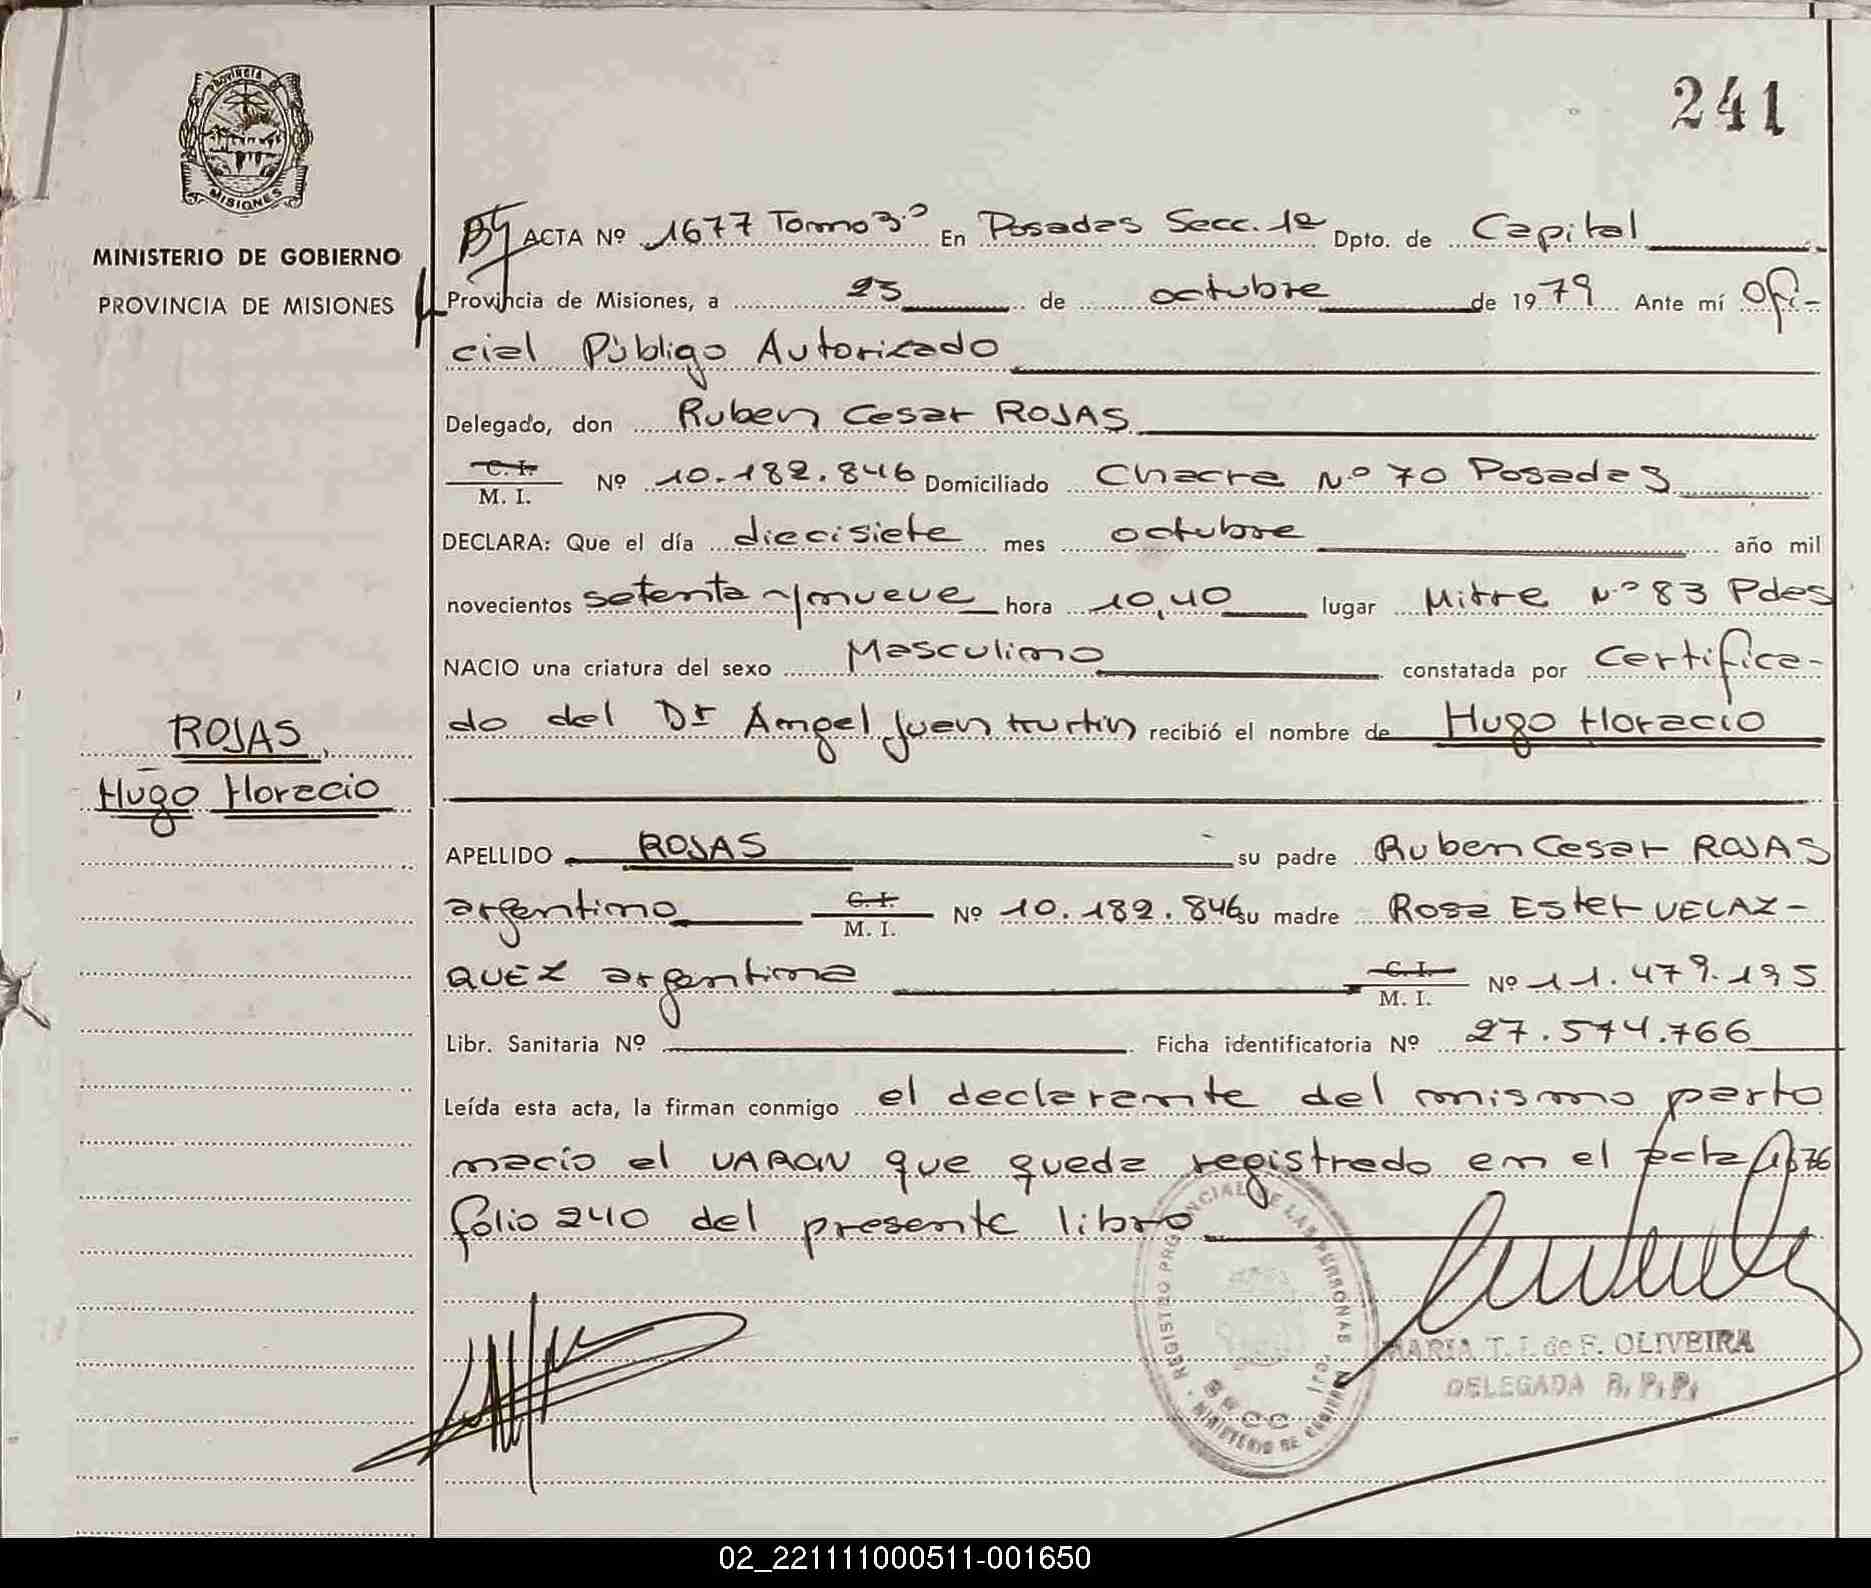 241
Provincia de
MISIONES
MINISTERIO DE GOBIERNO
PROVINCIA DE MISIONES
ACTA Nº 1677 Tomo 3º En Posadas Secc. 1ª Dpto. de Capital
Provincia de Misiones, a 23 de octubre de 1979 Ante mí Ofi-
cial Públigo Autorizado
Delegado, don Ruben Cesar ROJAS
C. I.
M. I. Nº 10.182.846 Domiciliado Chacra Nº 70 Posadas
DECLARA: Que el día diecisiete mes octubre año mil
novecientos setenta y nueve hora 10,40 lugar Mitre Nº 83 Pdas
NACIO una criatura del sexo Masculino constatada por Certifica-
do del Dr Angel Juan recibió el nombre de Hugo Horacio
ROJAS
Hugo Horacio
APELLIDO ROJAS su padre Ruben Cesar ROJAS
argentino C. I.
M. I. Nº 10.182.846 su madre Rosa Ester VELAZ-
QUEZ argentina C. I.
M. I. Nº 11.479.195
Libr. Sanitaria Nº Ficha identificatoria Nº 27.574.766
Leída esta acta, la firman conmigo el declarante del mismo parto
nacio el VARON que queda registrado en el acta 1676
folio 240 del presente libro
REGISTRO PROVINCIAL DE LAS PERSONAS
SECC 1ra.
MINISTERIO DE GOBIERNO
MARIA T. I. de F. OLIVEIRA
DELEGADA R. P. P.
02_221111000511-001650